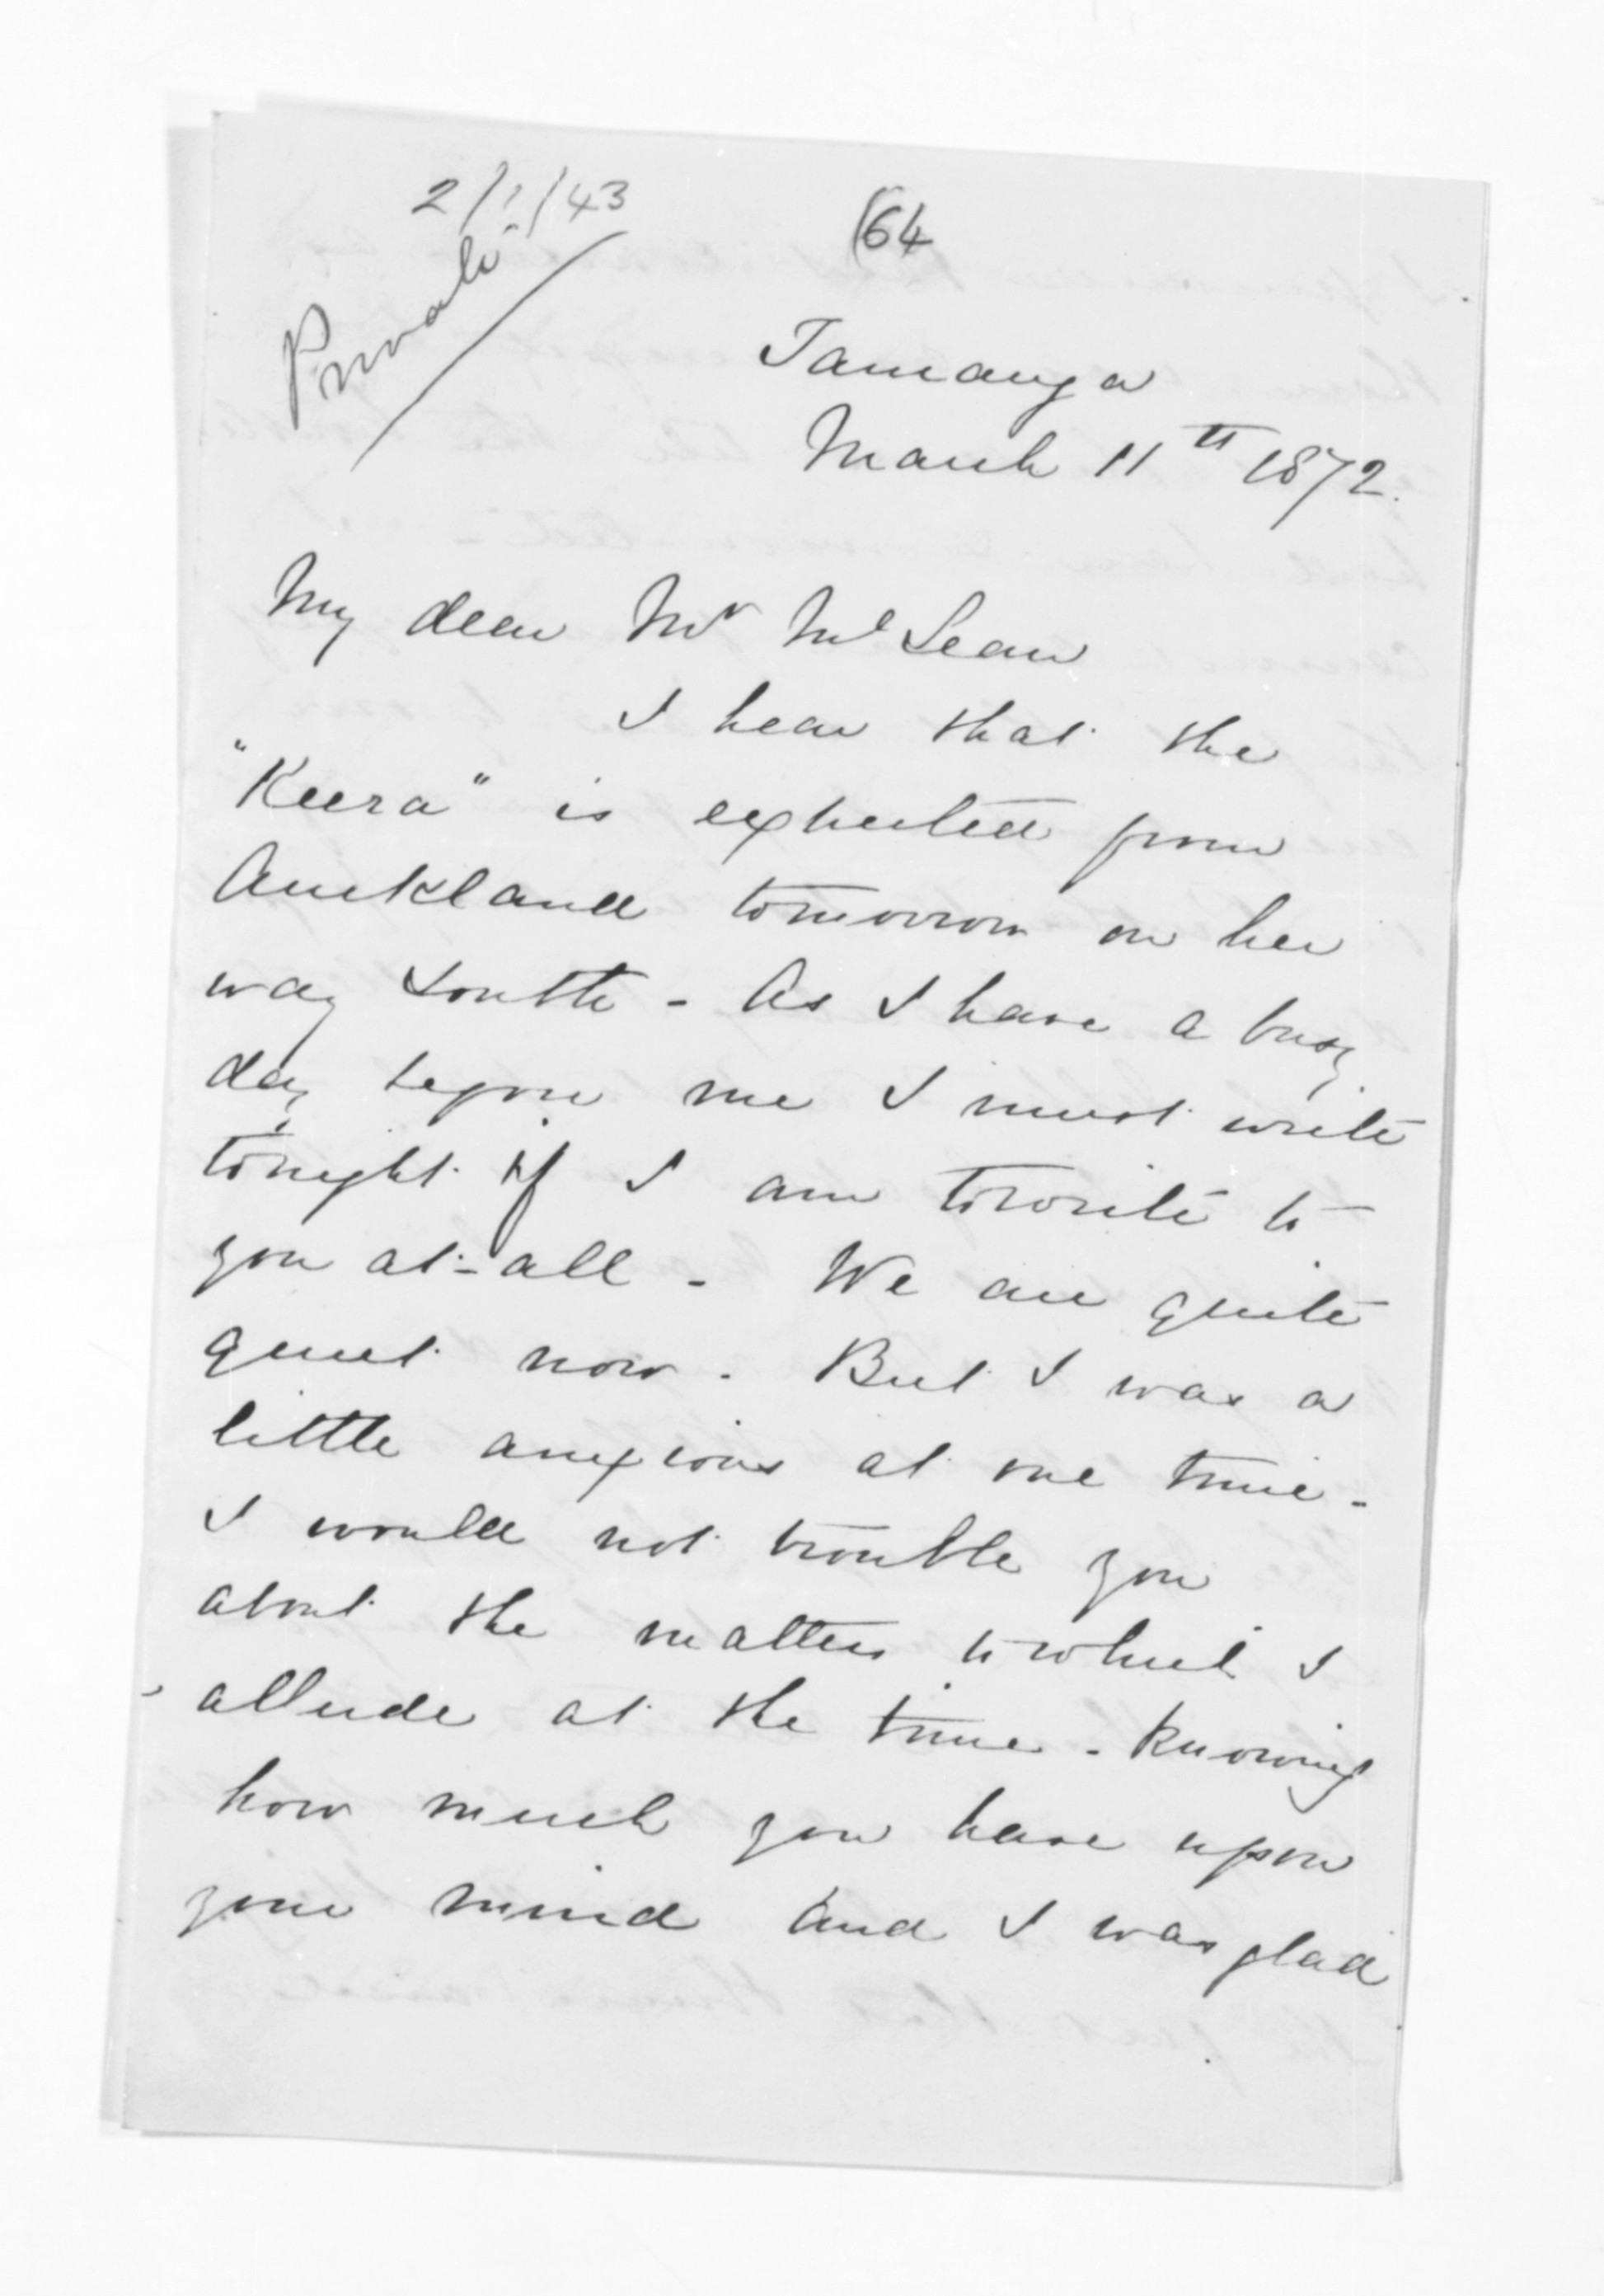 2/?/43
(64
Private
Tauranga
March 11th 1872.
My dear Mr McLean
I hear that the
"Keera" is expected from
Auckland tomorrow on her
way South - As I have a busy
day before me I must write
tonight if I am to write to
you at-all - We are quite
quiet now. But I was a
little anxious at one time -
I would not trouble you
about the matter to which I
allude at the time - knowing
how much you have upon
your mind and I was glad